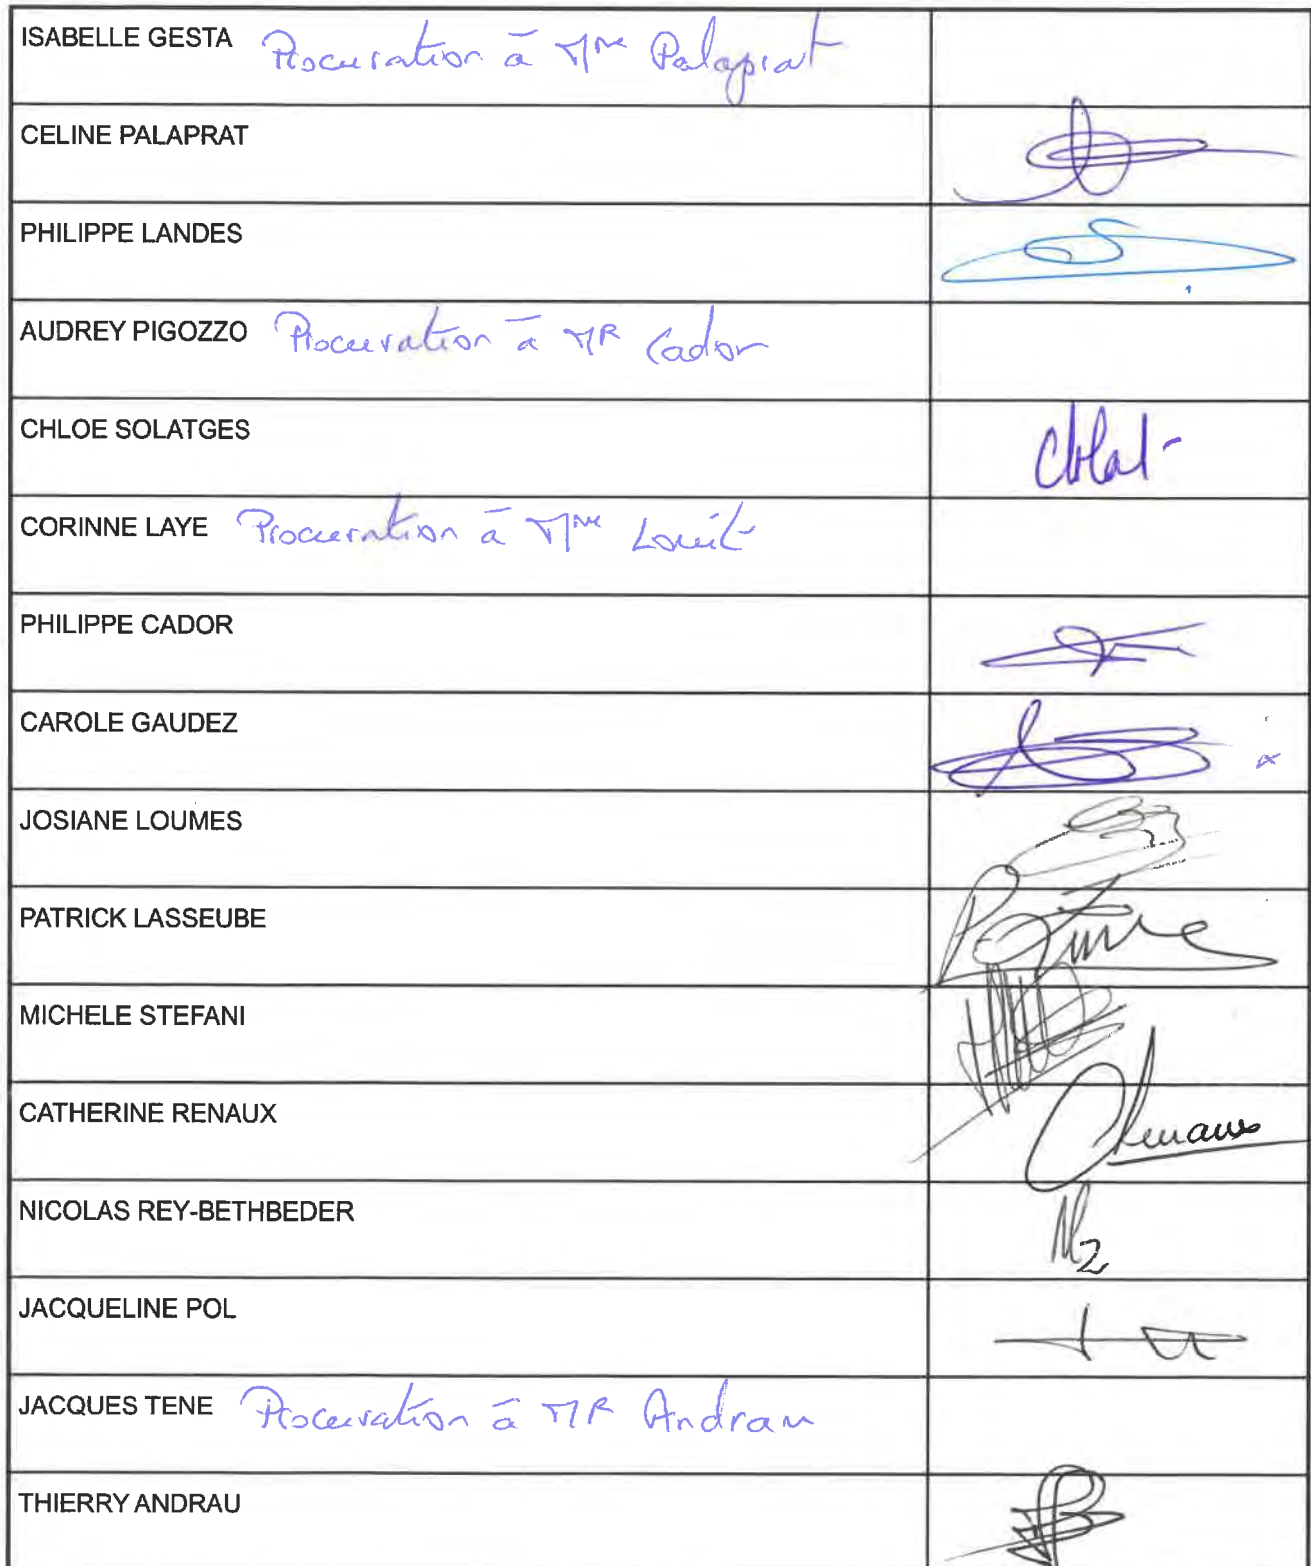 ISABELLE GESTA Procuration à Mme Palaprat
CELINE PALAPRAT
PHILIPPE LANDES
AUDREY PIGOZZO Procuration à MR Cador
CHLOE SOLATGES
CORINNE LAYE Procuration à Mme Louit
PHILIPPE CADOR
CAROLE GAUDEZ
JOSIANE LOUMES
PATRICK LASSEUBE
MICHELE STEFANI
CATHERINE RENAUX
NICOLAS REY-BETHBEDER
JACQUELINE POL
JACQUES TENE Procuration à MR Andrau
THIERRY ANDRAU